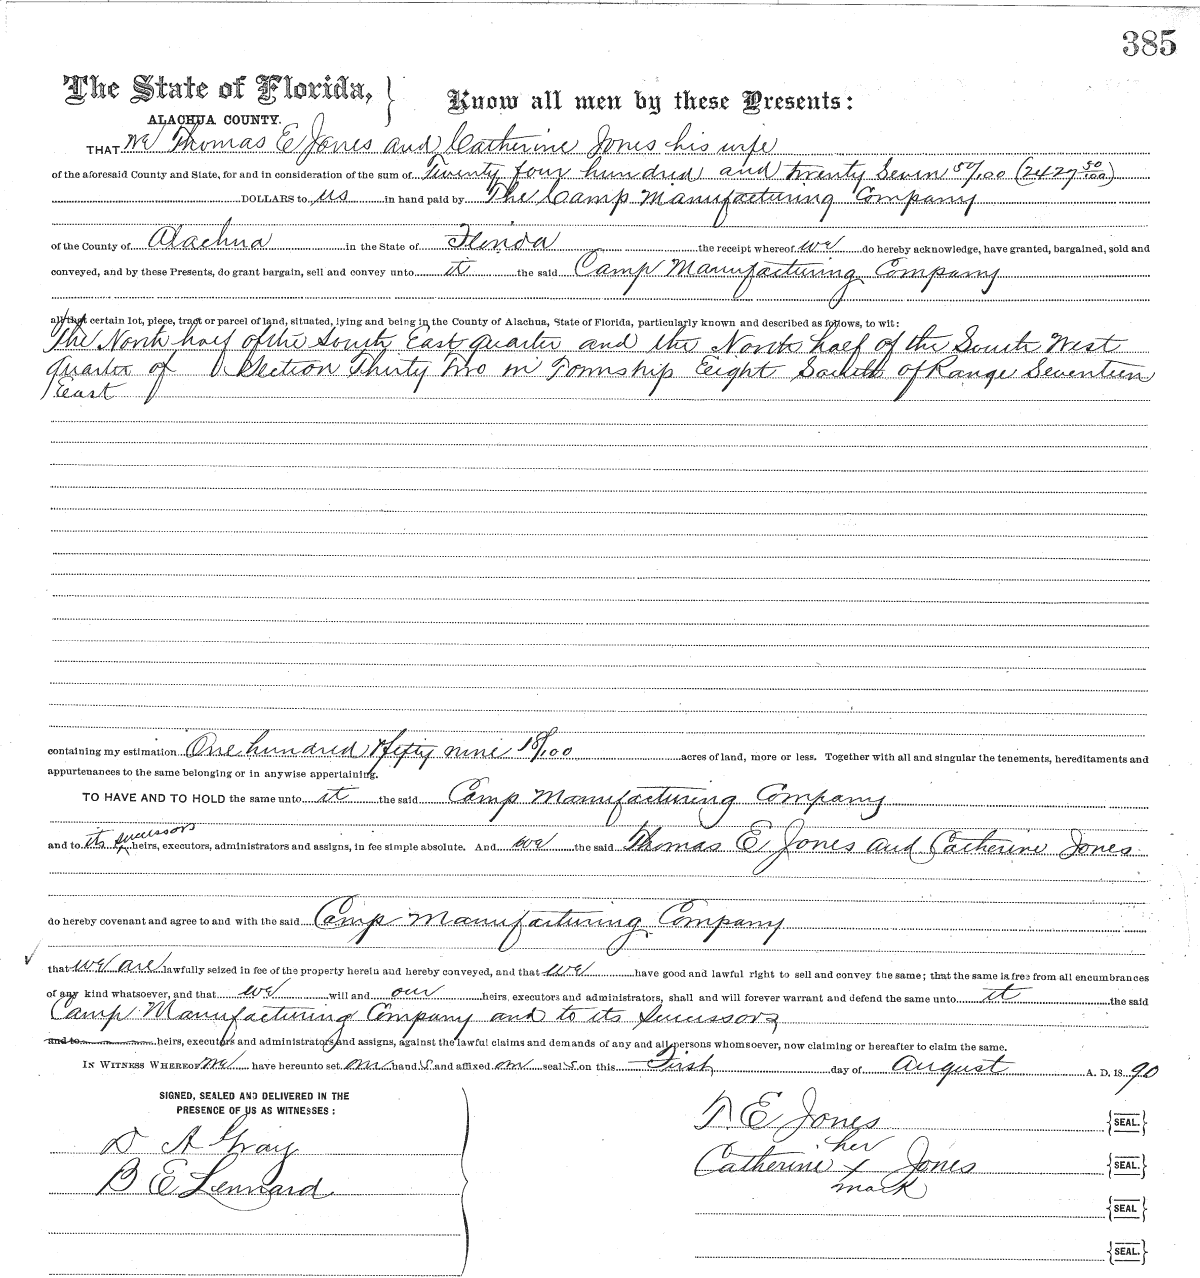 385
The State of Florida, } Know all men by these Presents:
ALACHUA COUNTY.
THAT We Thomas E Jones and Catherine Jones his wife
of the aforesaid County and State, for and in consideration of the sum of Twenty four hundred and twenty Seven 50/100 (2427 50/100)
DOLLARS to us in hand paid by The Camp Manufacturing Company
of the County of Alachua in the State of Florida the receipt whereof we do hereby acknowledge, have granted, bargained, sold and
conveyed, and by these Presents, do grant bargain, sell and convey unto it the said Camp Manufacturing Company
all that certain lot, piece, tract or parcel of land, situated, lying and being in the County of Alachua, State of Florida, particularly known and described as follows, to wit:
The North half of the South East quarter and the North half of the South West
quarter of Section Thirty Two in Township Eight South of Range Seventeen
East
containing my estimation One hundred & fifty nine 18/100 acres of land, more or less. Together with all and singular the tenements, hereditaments and
appurtenances to the same belonging or in anywise appertaining.
TO HAVE AND TO HOLD the same unto it the said Camp Manufacturing Company
and to its successors heirs, executors, administrators and assigns, in fee simple absolute. And we the said Thomas E Jones and Catherine Jones
do hereby covenant and agree to and with the said Camp Manufacturing Company
that we are lawfully seized in fee of the property herein and hereby conveyed, and that we have good and lawful right to sell and convey the same; that the same is free from all encumbrances
of any kind whatsoever, and that we will and our heirs, executors and administrators, shall and will forever warrant and defend the same unto it the said
Camp Manufacturing Company and to its Successors
and to heirs, executors and administrators and assigns, against the lawful claims and demands of any and all persons whomsoever, now claiming or hereafter to claim the same.
IN WITNESS WHEREOF we have hereunto set our hand s and affixed our seal s on this First day of August A. D. 18 90
SIGNED, SEALED AND DELIVERED IN THE
PRESENCE OF US AS WITNESSES:
D A Gray
B E Lennard
T. E Jones {SEAL.}
her
Catherine x Jones {SEAL.}
mark
{SEAL}
{SEAL.}